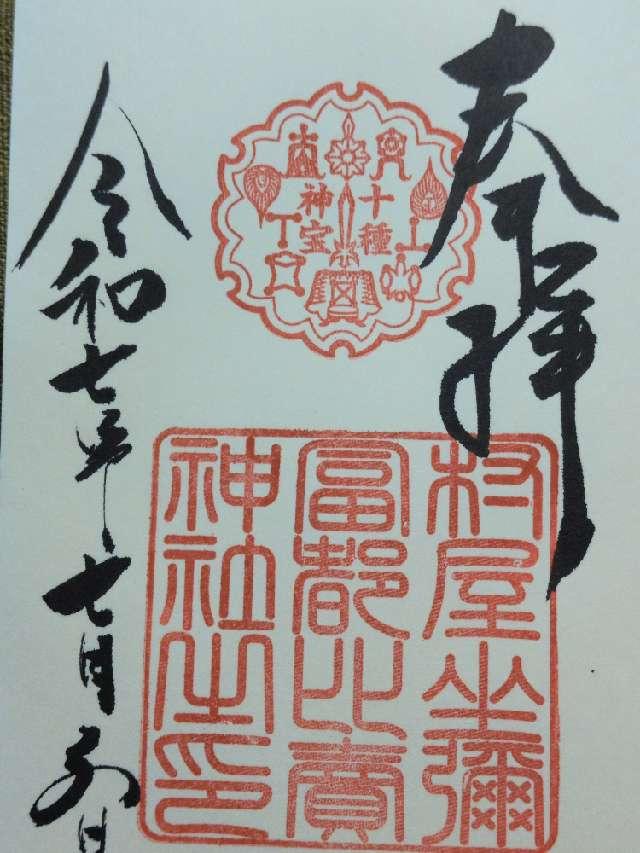 奉拝
十種
神宝
村屋坐彌
冨都比賣
神社之印
令和七年七月五日